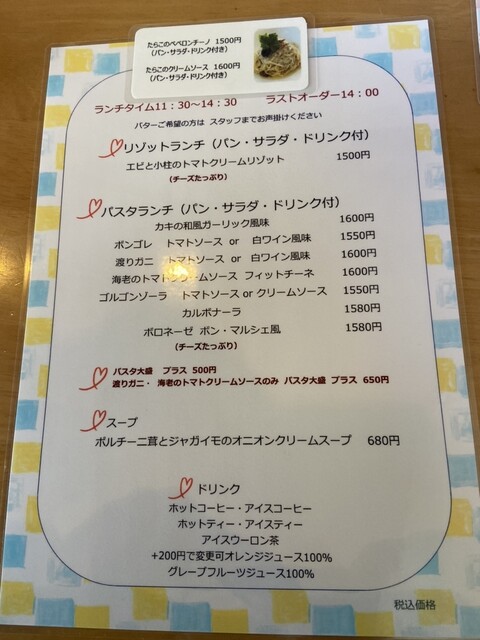 たらこのペペロンチーノ 1500円
(パン・サラダ・ドリンク付き)
たらこのクリームソース 1600円
(パン・サラダ・ドリンク付き)
ランチタイム11：30～14：30 ラストオーダー14：00
バターご希望の方は スタッフまでお声掛けください
リゾットランチ（パン・サラダ・ドリンク付）
エビと小柱のトマトクリームリゾット 1500円
(チーズたっぷり)
パスタランチ（パン・サラダ・ドリンク付）
カキの和風ガーリック風味 1600円
ボンゴレ トマトソース or 白ワイン風味 1550円
渡りガニ トマトソース or 白ワイン風味 1600円
海老のトマトクリームソース フィットチーネ 1600円
ゴルゴンゾーラ トマトソース or クリームソース 1550円
カルボナーラ 1580円
ボロネーゼ ボン・マルシェ風 1580円
(チーズたっぷり)
パスタ大盛 プラス 500円
渡りガニ・ 海老のトマトクリームソースのみ パスタ大盛 プラス 650円
スープ
ポルチーニ茸とジャガイモのオニオンクリームスープ 680円
ドリンク
ホットコーヒー・アイスコーヒー
ホットティー・アイスティー
アイスウーロン茶
+200円で変更可オレンジジュース100%
グレープフルーツジュース100%
税込価格